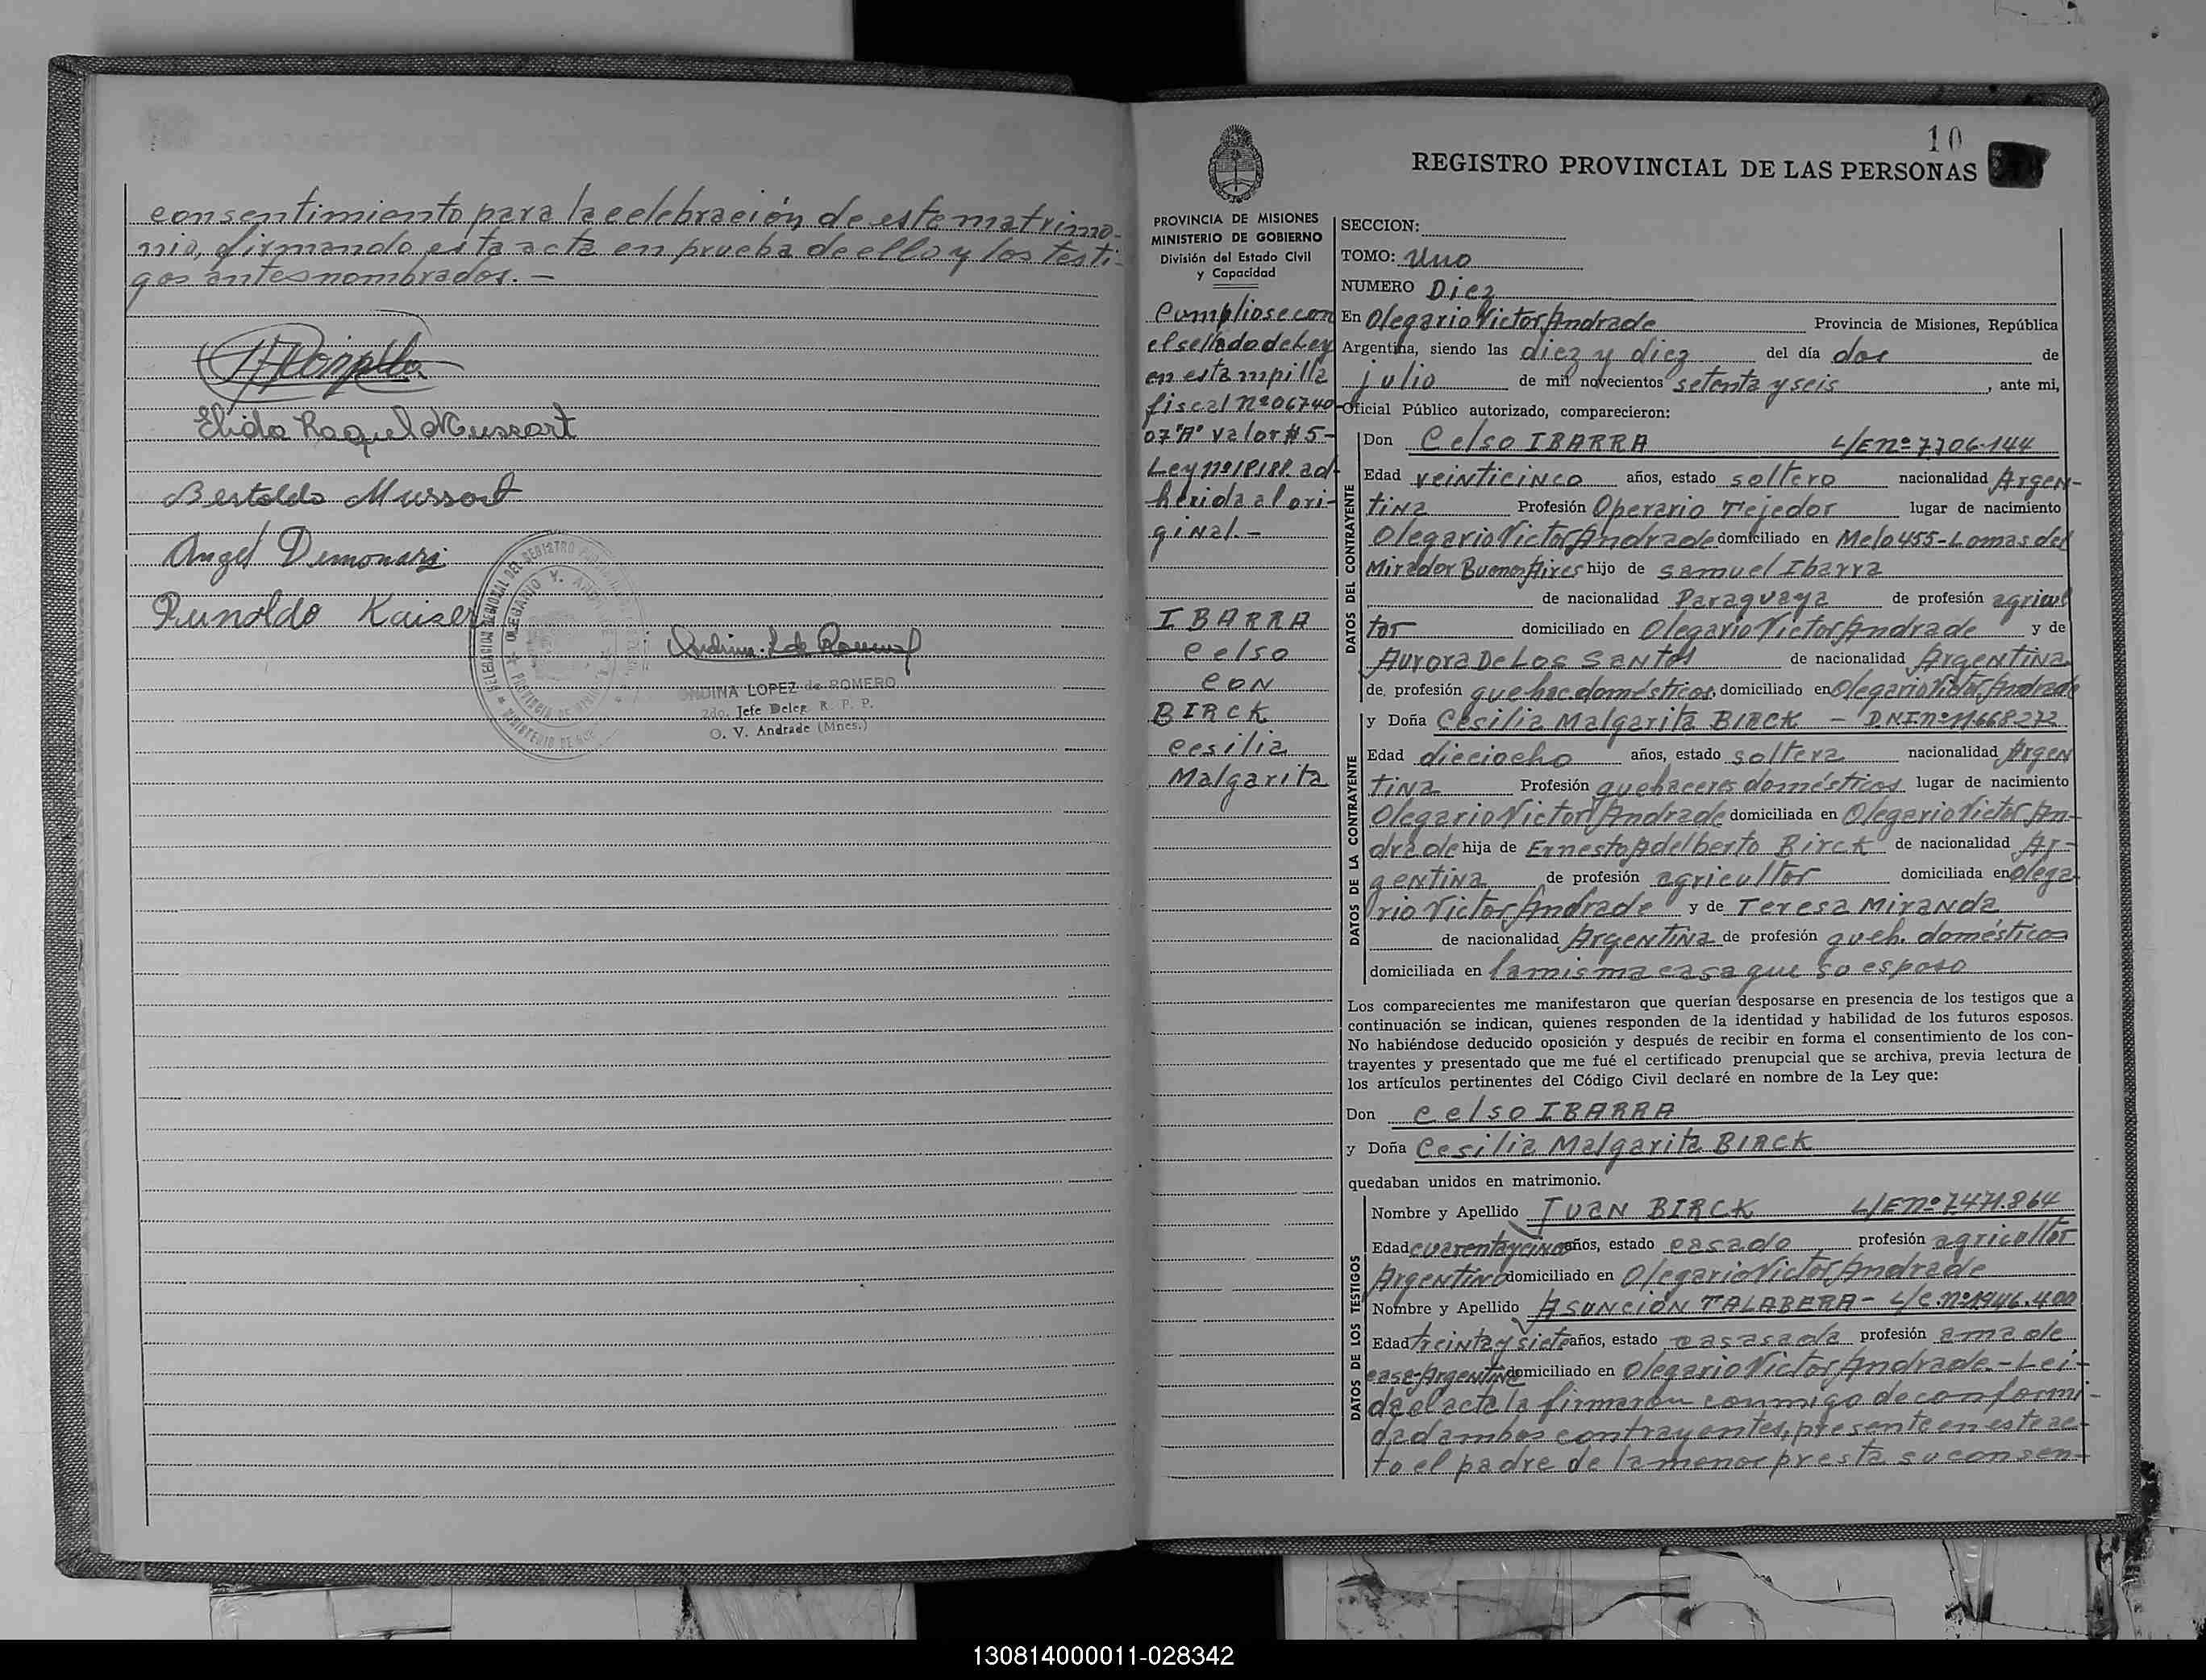 consentimiento para la celebración de este matrimo-
nio, firmando esta acta en prueba de ello y los testi-
gos antes nombrados. -
Elida Raquel Mussart
Bertoldo Mussart
Angel Demonari
Runoldo Kaiser
ONDINA LOPEZ de ROMERO
2do. Jefe Deleg. R. P. P.
O. V. Andrade (Mnes.)
10
REGISTRO PROVINCIAL DE LAS PERSONAS
PROVINCIA DE MISIONES
MINISTERIO DE GOBIERNO
División del Estado Civil
y Capacidad
Cumpliose con
el sellado de Ley
en estampilla
fiscal nº 06740
07 "A" valor $ 5-
Ley nº 18188. ad-
herida al ori-
ginal.-
IBARRA
Celso
CON
BIRCK
Cesilia
Malgarita
SECCION:
TOMO: Uno
NUMERO Diez
En Olegario Victor Andrade Provincia de Misiones, República
Argentina, siendo las diez y diez del día dos de
julio de mil novecientos setenta y seis, ante mi,
Oficial Público autorizado, comparecieron:
DATOS DEL CONTRAYENTE
Don Celso IBARRA L/E nº 7.706.144
Edad veinticinco años, estado soltero nacionalidad Argen-
tina Profesión Operario Tejedor lugar de nacimiento
Olegario Victor Andrade domiciliado en Melo 455-Lomas del
Mirador Buenos Aires hijo de Samuel Ibarra
de nacionalidad Paraguaya de profesión agricul
tor domiciliado en Olegario Victor Andrade y de
Aurora De Los Santos de nacionalidad Argentina
de profesión quehac. domésticos, domiciliado en Olegario Victor Andrade
DATOS DE LA CONTRAYENTE
y Doña Cesilia Malgarita BIRCK - DNI nº 11.668.272
Edad dieciocho años, estado soltera nacionalidad Argen
tina Profesión quehaceres domésticos lugar de nacimiento
Olegario Victor Andrade domiciliada en Olegario Victor An-
drade hija de Ernesto Adelberto Birck de nacionalidad Ar-
gentina de profesión agricultor domiciliada en Olega-
rio Victor Andrade y de Teresa Miranda
de nacionalidad Argentina de profesión queh. domésticos
domiciliada en la misma casa que su esposo
Los comparecientes me manifestaron que querían desposarse en presencia de los testigos que a
continuación se indican, quienes responden de la identidad y habilidad de los futuros esposos.
No habiéndose deducido oposición y después de recibir en forma el consentimiento de los con-
trayentes y presentado que me fué el certificado prenupcial que se archiva, previa lectura de
los artículos pertinentes del Código Civil declaré en nombre de la Ley que:
Don Celso IBARRA
y Doña Cesilia Malgarita BIRCK
quedaban unidos en matrimonio.
DATOS DE LOS TESTIGOS
Nombre y Apellido Juan BIRCK L/E nº 7.471.864
Edad cuarenta y cinco años, estado casado profesión agricultor
Argentino domiciliado en Olegario Victor Andrade
Nombre y Apellido ASUNCIÓN TALABERA - L/C. nº 1.946.400
Edad treinta y siete años, estado casasada profesión ama de
casa-Argentina domiciliado en Olegario Victor Andrade.-Lei-
da el acta la firmaron conmigo de conformi-
dad ambos contrayentes, presente en este ac-
to el padre de la menor presta su consen-
130814000011-028342